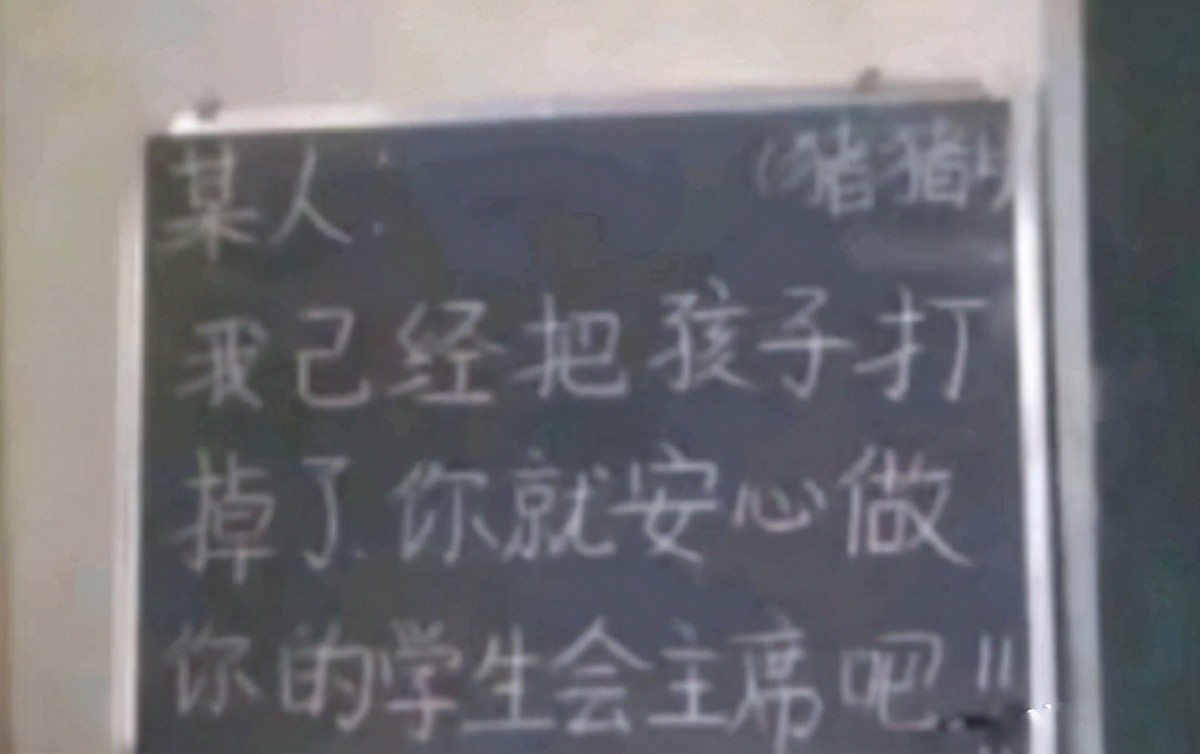 某人: (猪猪)
我己经把孩子打
掉了.你就安心做
你的学生会主席吧!!